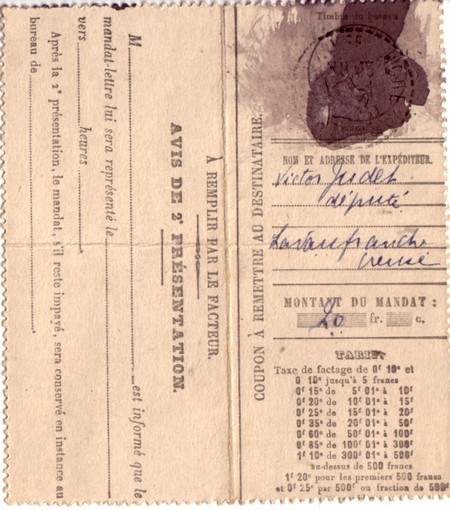 À REMPLIR PAR LE FACTEUR.
AVIS DE 2e PRÉSENTATION.
M est informé que le
mandat-lettre lui sera représenté le
vers heures
Après la 2e présentation, le mandat, s'il reste impayé, sera conservé en instance au
bureau de
COUPON À REMETTRE AU DESTINATAIRE.
Timbre du bureau
NOM ET ADRESSE DE L'EXPÉDITEUR.
Victor Judet
député
Creuse
MONTANT DU MANDAT :
20 fr. c.
TARIF
Taxe de factage de 0f 10c et
0 10c jusqu'à 5 francs
0f 15c de 5f 01c à 10f
0f 20c de 10f 01c à 15f
0f 25c de 15f 01c à 20f
0f 35c de 20f 01c à 50f
0f 60c de 50f 01c à 100f
0f 85c de 100f 01c à 300f
1f 10c de 300f 01c à 500f
au-dessus de 500 francs
1f 20c pour les premiers 500 francs
et 0f 25c par 500f ou fraction de 500f